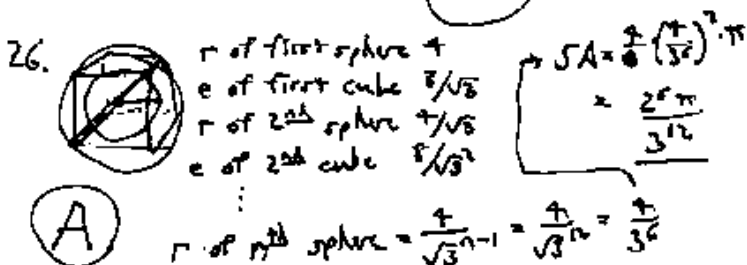 26.
r of first sphere 4
e of first cube 8/√3
r of 2nd sphere 4/√3
e of 2nd cube 8/√3²
⋮
r of nth sphere = 4/√3ⁿ⁻¹ = 4/√3¹² = 4/3⁶
→ SA = 4 (4/3⁶)² · π
= 2⁶π/3¹²
A